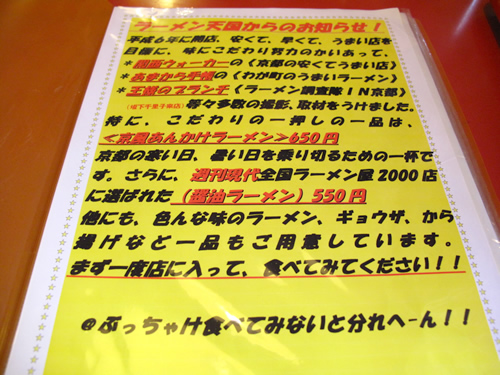 ラーメン天国からのお知らせ!
平成6年に開店、安くて、早くて、うまい店を
目標に、味にこだわり努力のかいあって、
*関西ウォーカーの〈京都の安くてうまい店〉
*あまから手帖の〈わが町のうまいラーメン〉
*王様のブランチ〈ラーメン調査隊IN京都〉
(坂下千里子来店) 等々多数の撮影、取材をうけました。
特に、こだわりの一押しの一品は、
<京風あんかけラーメン>650円
京都の寒い日、暑い日を乗り切るための一杯で
す、さらに、週刊現代全国ラーメン屋2000店
に選ばれた(醤油ラーメン)550円
他にも、色んな味のラーメン、ギョウザ、から
揚げなど一品もご用意しています。
まず一度店に入って、食べてみてください!!
@ぶっちゃけ食べてみないと分れへーん!!